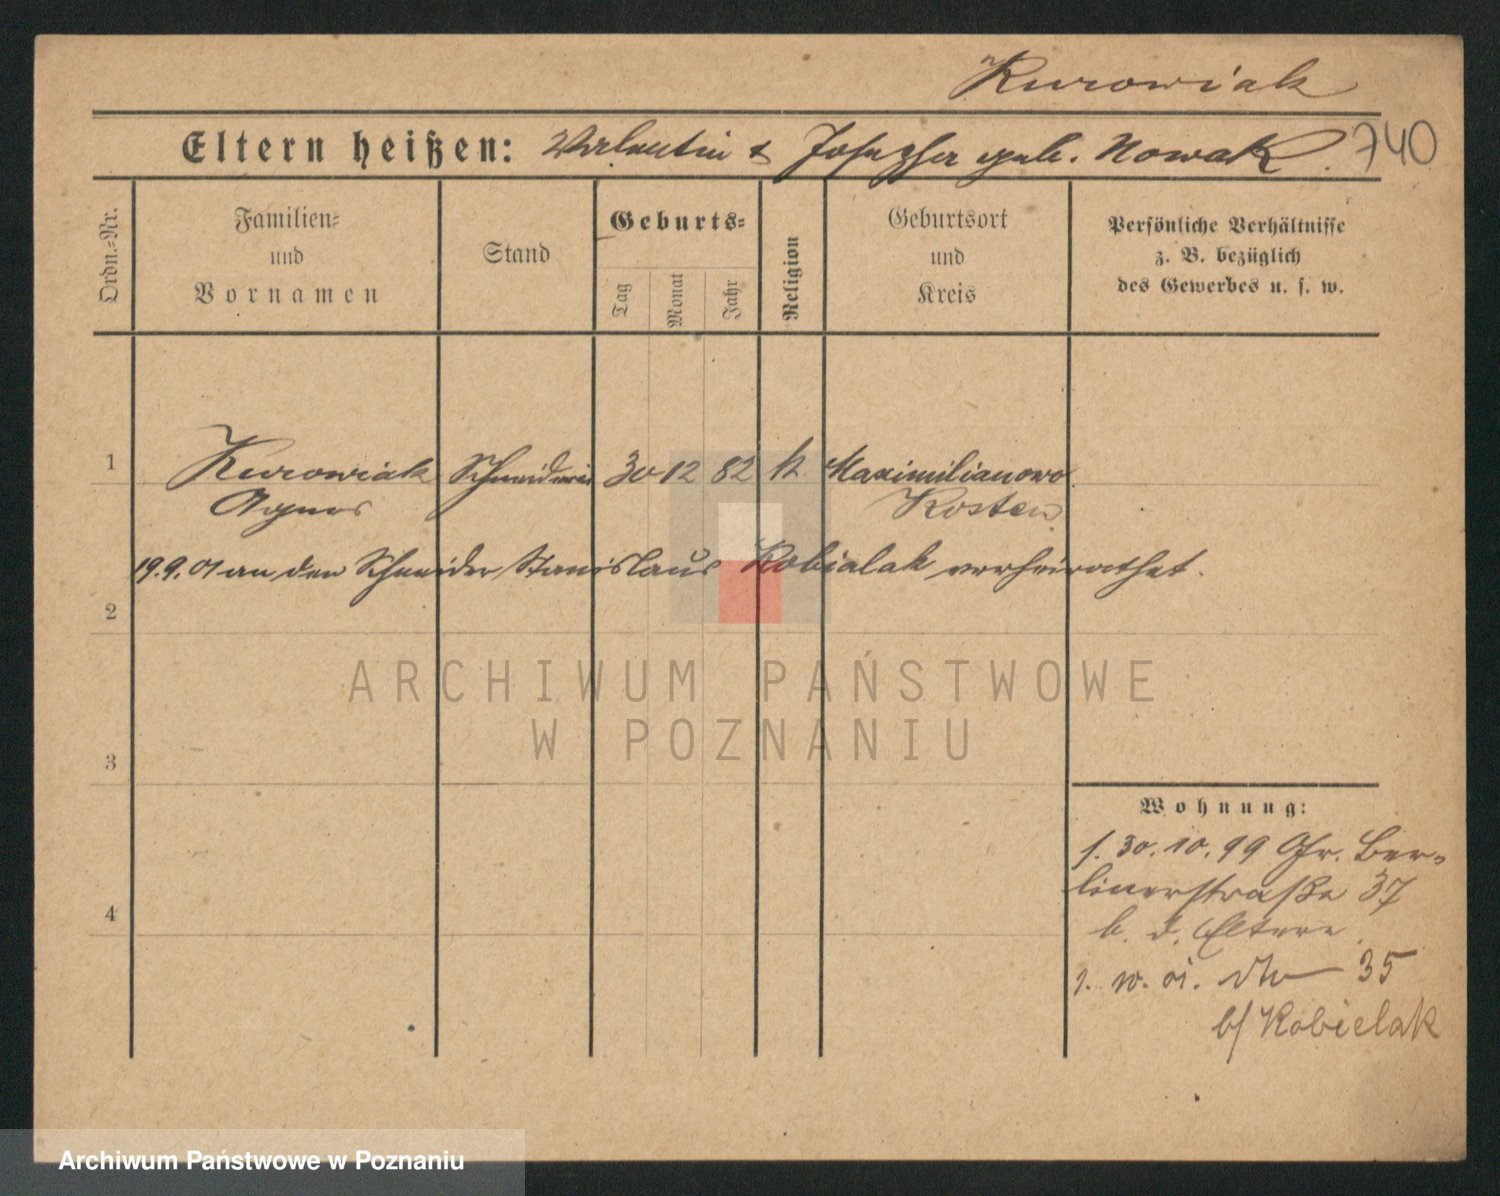 Kurowiak
Eltern heißen: Valentin & Josepha geb. Nowak. 740
Ordn.-Nr.
Familien-
und
Vornamen
Stand
Geburts-
Tag
Monat
Jahr
Religion
Geburtsort
und
Kreis
Persönliche Verhältnisse
z. B. bezüglich
des Gewerbes u. s. w.
1 Kurowiak Schneiderin 30 12 82 k Maximilianowo
Agnes Kosten
19.9.01 an den Schneider Stanislaus Kobialak verheirathet.
2
3
4
ARCHIWUM PAŃSTWOWE
W POZNANIU
Wohnung:
s. 30.10.99 Gr. Ber-
linerstraße 37
b. d. Eltern
1. 10. 01. dto 35
b/ Kobielak
Archiwum Państwowe w Poznaniu